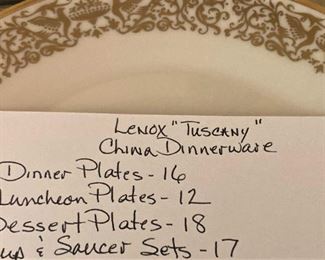 Lenox "Tuscany"
China Dinnerware
Dinner Plates - 16
Luncheon Plates - 12
Dessert Plates - 18
up & Saucer Sets - 17